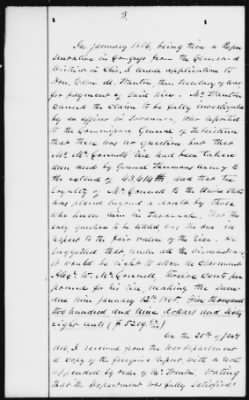 3.
In January 1866, being then a Repre
sentative in Congress from the Cleveland
District in Ohio, I made application to
Hon. Edwin M. Stanton then Secretary of War
for payment of said rice. Mr. Stanton
caused the claim to be fully investigated
by an officer in Savannah, who reported
to the Commissary General of Subsistence
that there was no question but that
Mr. McConnell's rice had been taken
and used by General Sherman's army to
the extent of 43,414 lbs and that the
loyalty of McConnell to the United States
was placed beyond a doubt by those
who knew him in Savannah. That the
only question to be settled was the one in
respect to the fair value of the rice. He
suggested that under all the circumstances
it would be right to allow the claimant
Alex. W. McConnell twelve cents per
pound for his rice, making the sum
due him January 12th 1865, Five thousand
two hundred and nine dollars and sixty
eight cents ($5209.68)
On the 20th of Jany
1866, I received from the War Department
a copy of the foregoing report, with a note
appended by order of Mr. Stanton stating
that the Department was fully satisfied